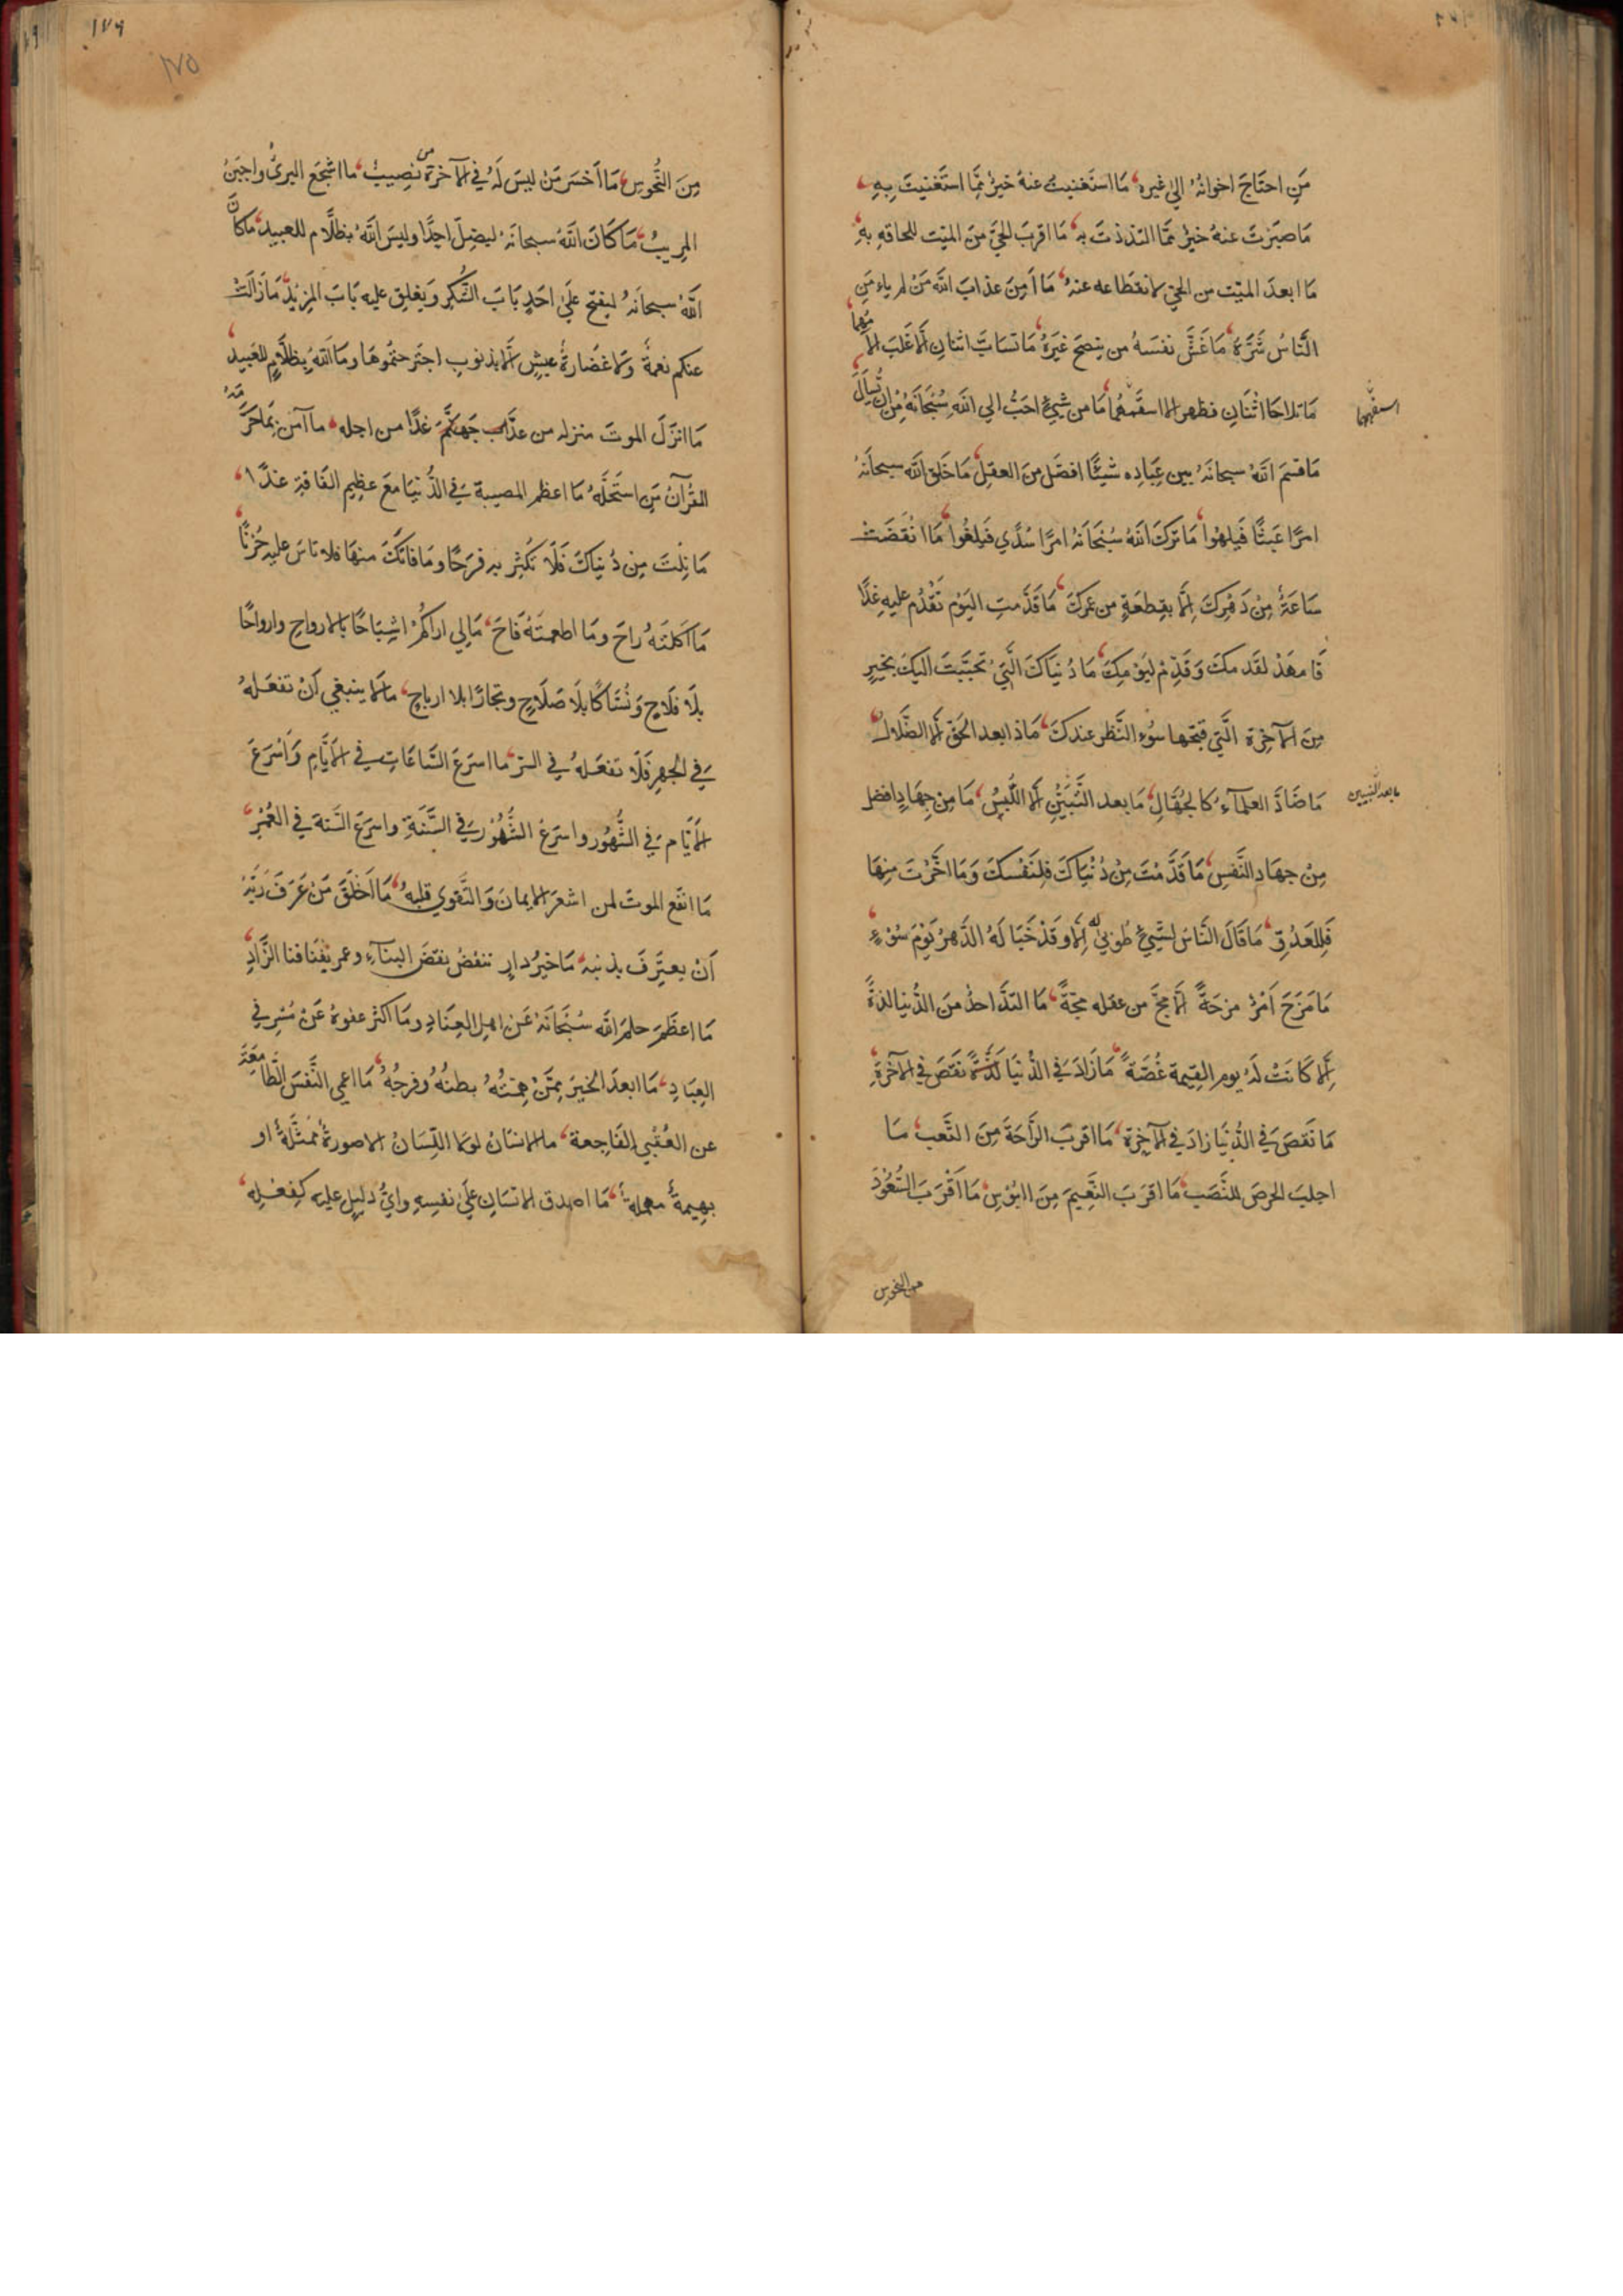 مَنِ احتَاجَ اخوانُهُ اليٰ غيره مَا استَغنيتَ عنهُ خيرٌ مِمَّا استَغنيتَ بِهِ
مَا صبَرْتَ عنهُ خيرٌ ممَّا التذذتَ به مَا اقربَ الحيَّ مِنَ الميّت للحاقهِ بهِ
مَا ابعدَ الميّت من الحيّ لانقطاعه عنهُ مَا اَمِنَ عذابَ الله مَنْ لم يامن
النَّاسُ شَرَّهُ مَا غَشَّ نفسَهُ من ينصح غَيَرهُ مَا تسَابَّ اثنانِ اِلّا غَلَبَ الامُهما
اسفههما
مَا تلاحَا اثْنَانِ فظهر الا اسفَههُما مَا من شيْئٍ احَبُّ الي اللهِ سُبْحَانَهُ مِنْ ان يُسأَلَ
مَا قسَم اللهُ سبحانَهُ بين عِبَادِه شيْئًا افضَل مِنَ العقِل مَا خَلَق الله سبحانَهُ
امرًا عَبثًا فَيلهوُا مَا تَركَ اللهُ سُبْحَانَهُ امرًا سُدًي فَيلغُوا مَا انْقَضَتْ
سَاعَةٌ مِنْ دَهْرِكَ اِلَّا بقِطعَةٍ من عمركَ مَا قَدَّمتِ اليَوْم تَقْدُم عليهِ غدًا
فَامهَدْ لقَد مكَ وَقَدِّمْ ليَوْمِكَ مَا دُنيَاكَ الَّتيِ تَحبَّبَت اليكَ بخيرٍ
مِنَ الآخِرَة الَّتي قبَّحها سُوُء النَّظر عندكَ مَاذا بعد الحَق اِلّا الضَّلال
مَا ضَادَّ العلمآءَ كالجُهّالِ مَا بعد التَّبَيُّنِ اِلّا اللَّبسُ مَا مِن جِهَادٍ افضل
ما بعد النبيين
مِنْ جهَادِ النَّفسِ مَا قَدَّمْتَ مِنْ دُنْيَاكَ فلِنَفْسكَ وَمَا اخَّرْتَ منِهَا
فَلِلعَدُوِّ مَا قَالَ النَّاسُ لشيْئٍ طُوبيٰ له اِلّا وقَدْ خَبَا لَهُ الدَّهرُ يَوْمَ سُوْءٍ
مَا مَزَحَ اَمْرُءٌ مزحَةً اِلّا مجَّ من عقله مجّةً مَا التذَّ احدٌ مِنَ الدُّنيا لذةً
اِلّا كَانتْ لَهُ يوم القِيمة غُصَّةً مَا زَادَ في الدُّنيَا نقَصَ في الآخرة
مَا نَقصَ في الدُّنيا زادَ في الآخِرَةِ مَا اقربَ الرَّاحَةَ مِنَ التَّعب مَا
اجلبَ الحرصَ للنَّصَب مَا اقرَبَ النَّعِيمَ مِنَ البُؤسِ مَا اَقْرَبَ السُّعُوْدَ
من النحوس
١٧٩
١٧٥
مِنَ النُّحُوسِ مَا اَخسَر مَنْ ليسَ لَهُ في الآخرَة من نصِيبٌ ما اشجَعَ البريُ واجبَنَ
المريبُ مَا كَانَ اللهُ سبحانَهُ ليضِلّ احدًا وليسَ اللهُ بظلَّام للعبيد مَا كانَ
اللهُ سبحانَهُ ليفتح عليٰ احَدٍ بَابَ الشُّكرِ وَيغلِق عليه بَابَ المزيْدِ مَا زَالَتْ
عنكم نعمةٌ وَلا غضَارةُ عيشٍ اِلّا بذنوبٍ اجتَرحتُموُهَا ومَا اللهُ بِظلَّامٍ للعَبيدِ
مَا انزَلَ الموتَ منزله من عدَّ جَهنَّمَ غدًا من اجله ما آمَن بِمَا حَرَّمَهُ
القُرآنُ مَنِ استَحلَّهُ مَا اعظم المصيبة في الدُّنيَا مَعَ عظِيم الفَاقةِ غدًا
مَا نِلْتَ مِن دُنيَاكَ فَلَا تكثر به فرَحًا ومَا فَاتَكَ منهَا فلا تاسَ عليه حُزْنًا
مَا اَكلتَهُ رَاحَ ومَا اطعمتَهُ فَاحَ مَالِي اراكُمْ اشبَاحًا بلا ارواحٍ وارواحًا
بلَا فلَاحٍ وَنُسَاكًا بلَا صَلَاحٍ وتجارًا بلا ارباحٍ ما لا ينبغي اَنْ تفعَلهُ
في الجهرِ فَلَا تفعَلهُ في السرّ ما اسرَعَ السَّاعَاتِ في الاَيَّامِ وَاَسْرَعَ
الاَيَّام في الشُّهُور واسرَع الشُّهُوْر في السَّنَةِ واسرَعَ السَّنةَ في العُمْرِ
مَا انفَع الموتَ لمن اشعَرَ الايمانَ وَالتَّقوي قلبهُ مَا اَخْلَقَ مَنْ عَرَفَ رَبَّهُ
اَنْ يعترِفَ بذنبهِ مَا خيرُ دارٍ تنقضُ نقضَ البنآءِ وعمر يَفْنَا فنا الزَّادِ
مَا اعظَمَ حلمَ الله سُبْحَانَهُ عَن اهلِ العِنَادِ ومَا اكثر عفوهُ عَنْ مُسْرِفي
العِبَادِ مَا ابعدَ الخيرَ مِمَّنْ همّتُهُ بطنُهُ وفرجُهُ مَا اعمي النَّفسَ الطَّامِعَةَ
عن العُقْبي الفَاجعة ما الانسَانُ لولا اللِّسَانُ الا صورةٌ ممثَّلةٌ او
بهِيمةٌ مهملةٌ مَا اصدق الانسَانِ عليٰ نفسِهِ وايُّ دليلٍ عليه كفعْلِهِ